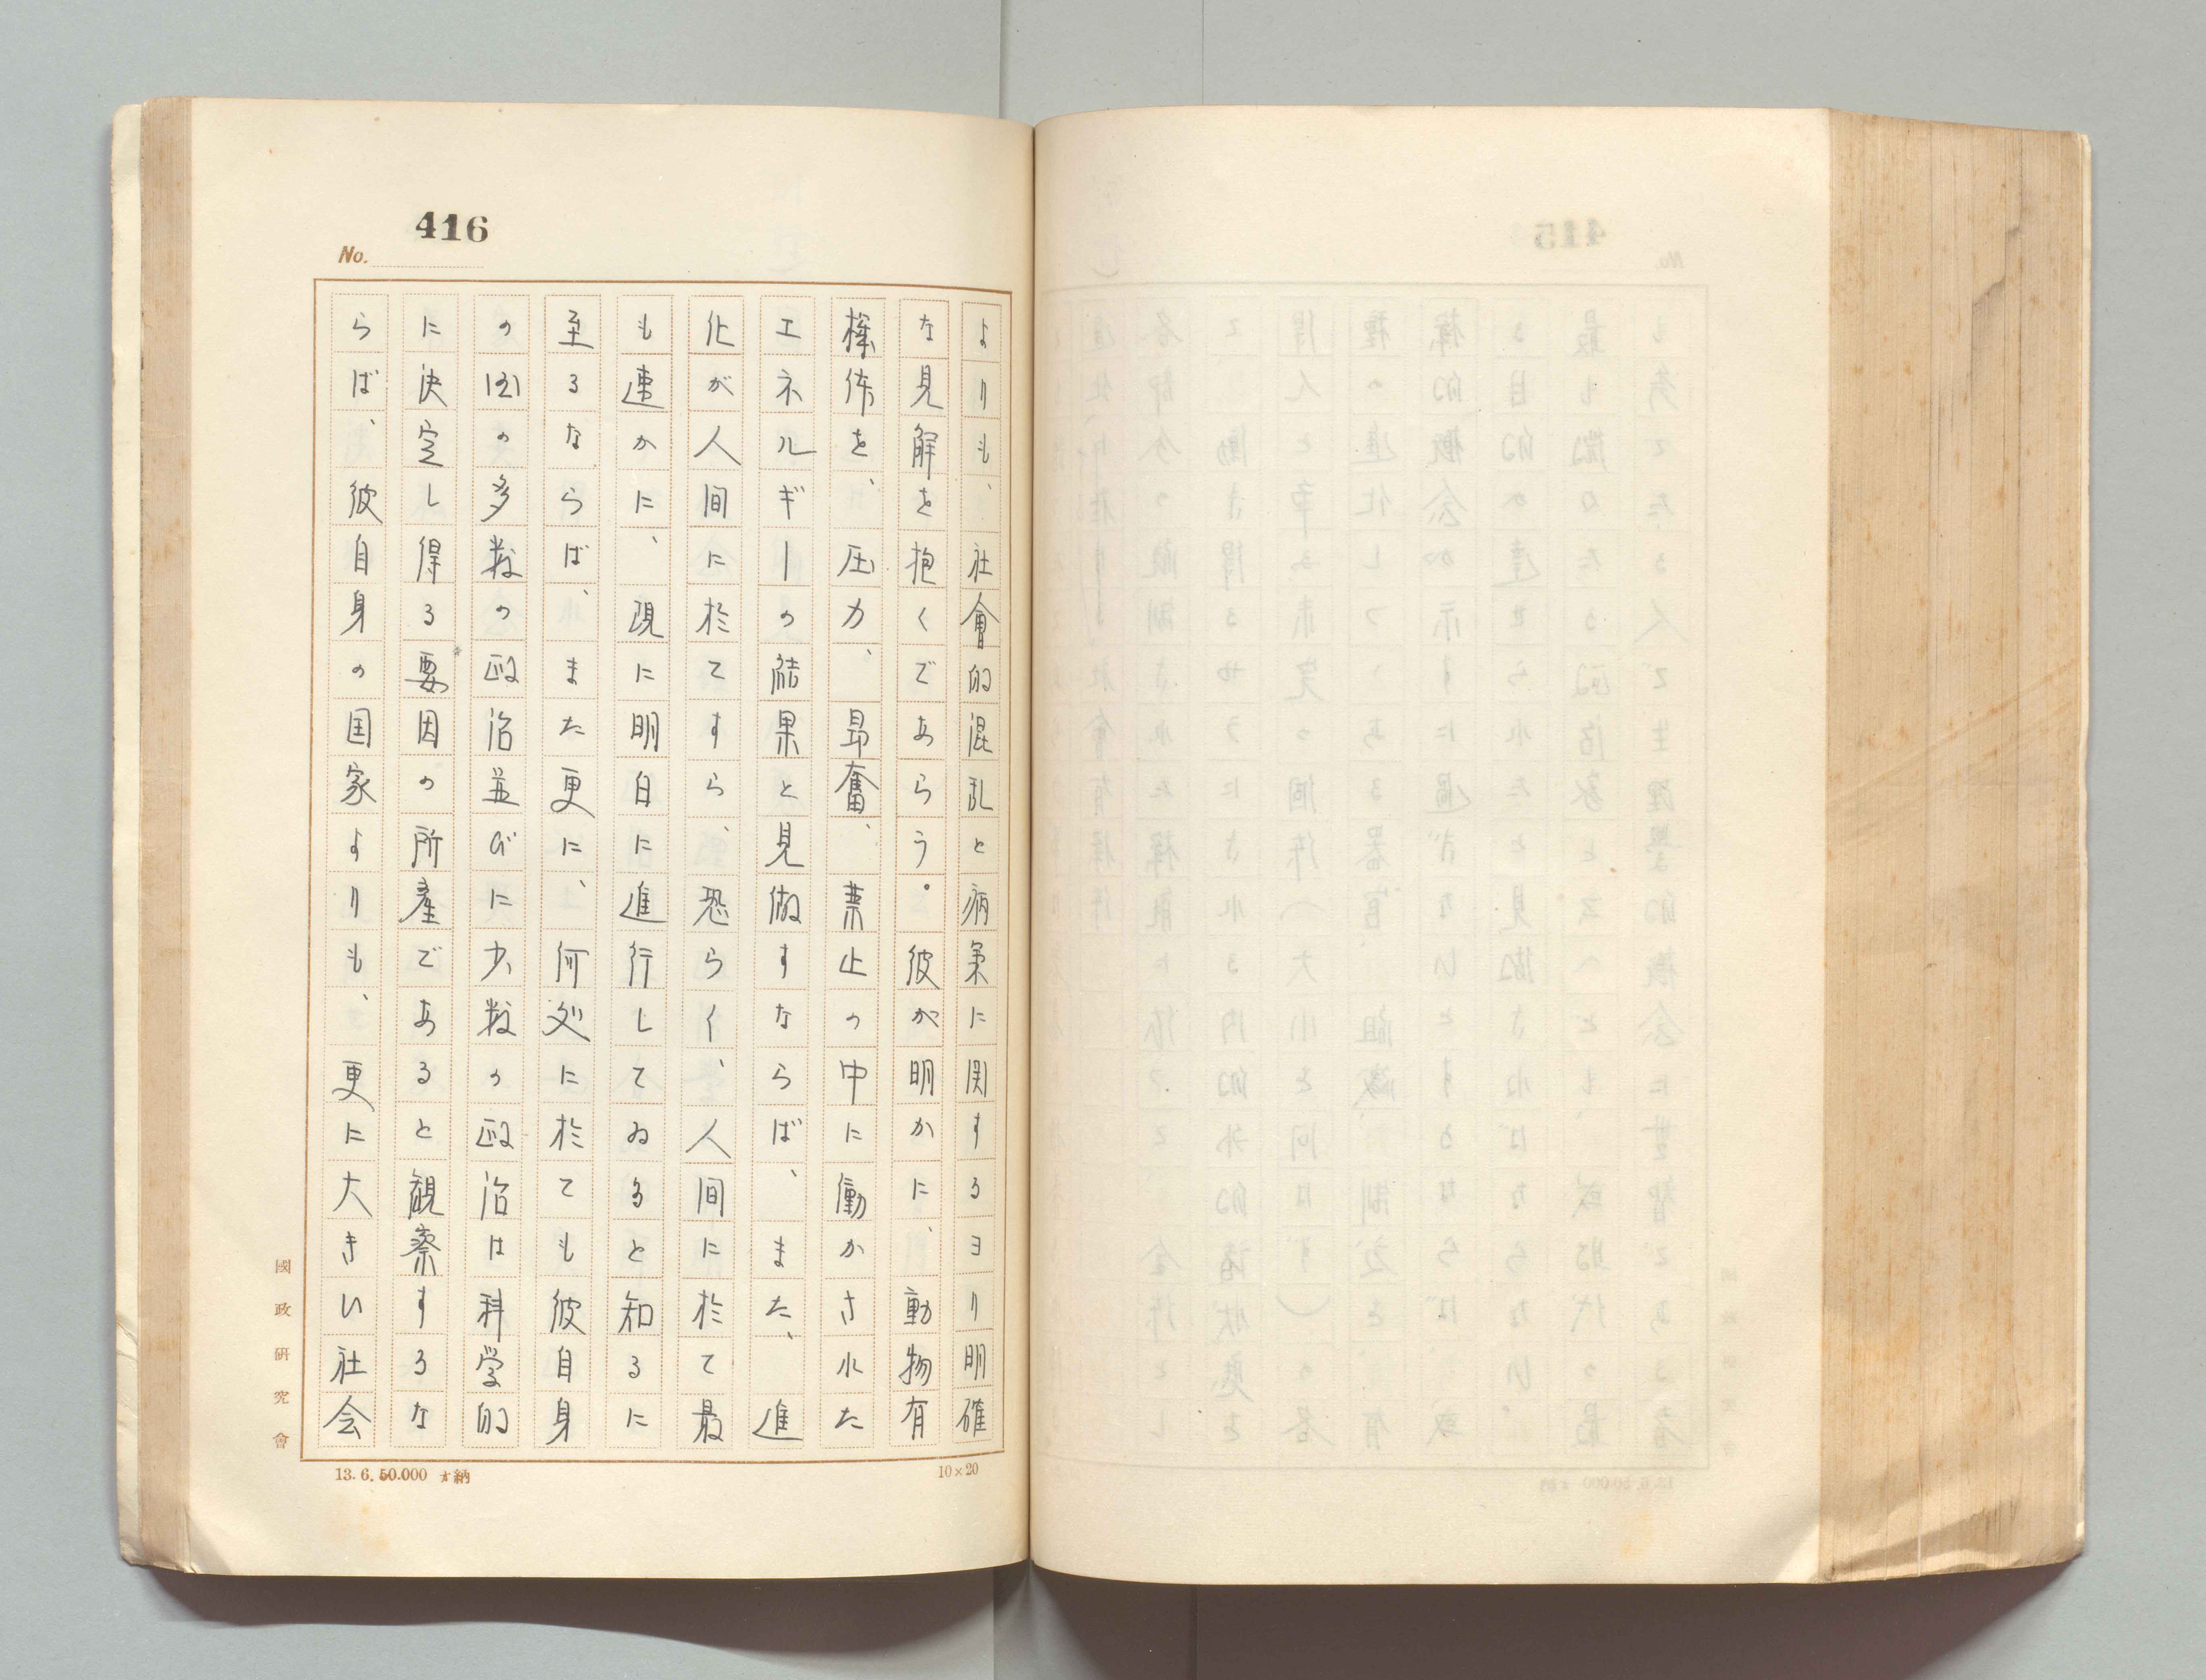 416
No.
よりも、社會的混乱と病氣に関するヨリ明確
な見解を抱くであらう。彼が明かに、動物有
機体を、圧力、昻奮、禁止の中に働かされた
エネルギーの結果と見做すならば、また、進
化が人間に於てすら、恐らく、人間に於て最
も速かに、現に明白に進行してゐると知るに
至るならば、また更に、何処に於ても彼自身
の国の多数の政治並びに少数の政治は科学的
に決定し得る要因の所產であると観察するな
らば、彼自身の国家よりも、更に大きい社会
國政研究會
13.6.50.000 納
10×20